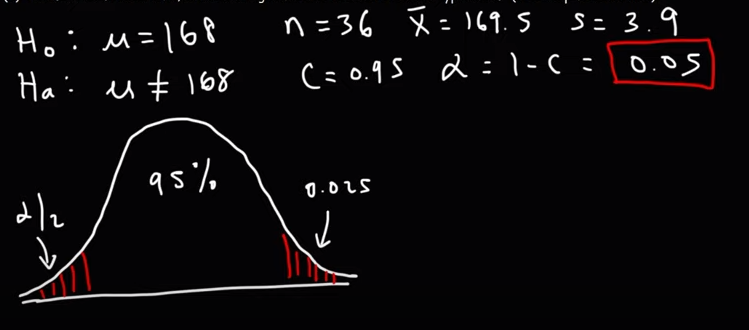 H₀: μ = 168 n = 36 x̄ = 169.5 s = 3.9
Ha: μ ≠ 168 C = 0.95 α = 1 - C = 0.05
95%
0.025
α/2